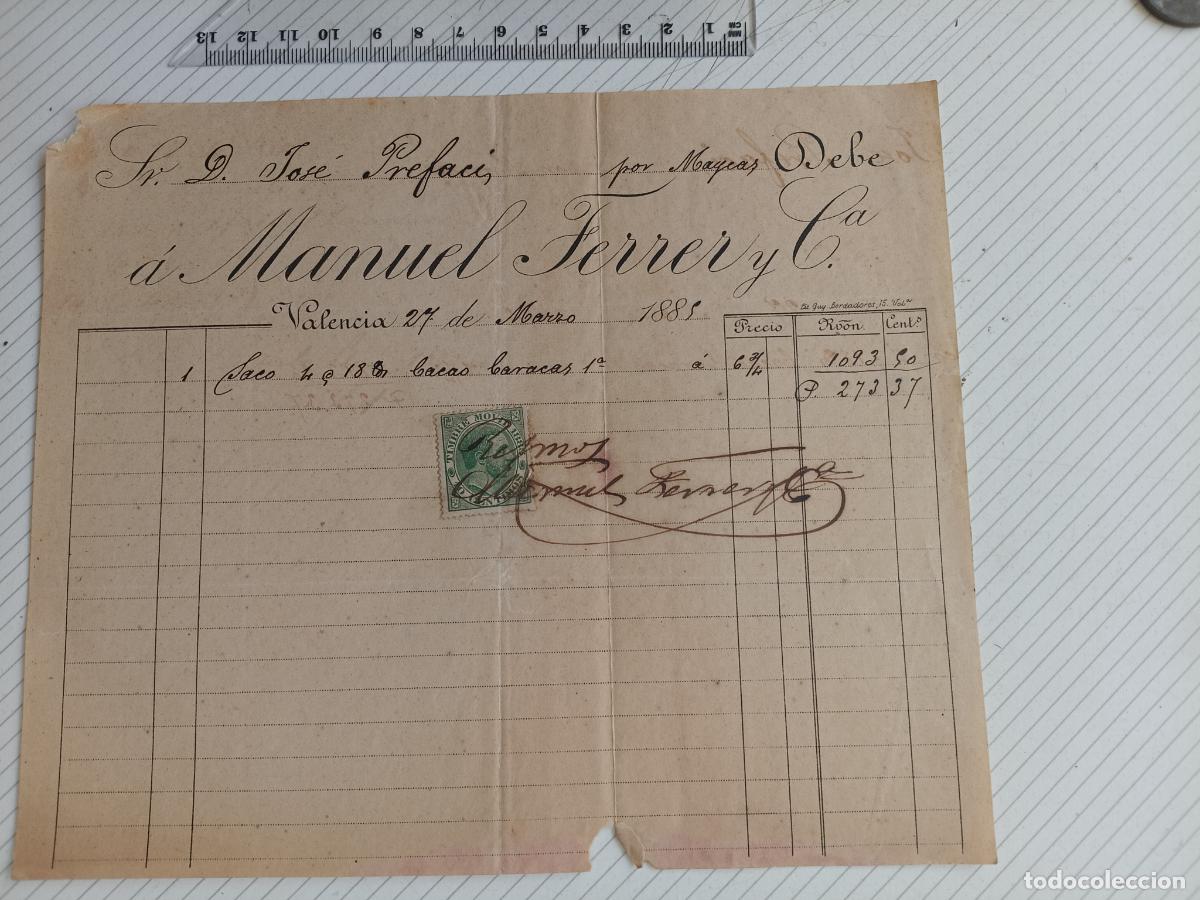 13 12 11 10 9 8 7 6 5 4 3 2 1 MM CM
Sr. D. José Prefaci, por Maycas Debe
á Manuel Ferrer y Cª.
Lit. Guy. Bordadores, 15. Valª
Valencia 27 de Marzo 1885
Precio Rvõn. Cents.
1 Saco 4 @ 18 Cacao Caracas 1ª á 6 3/4 1093 50
P. 273 37
TIMBRE MOVIL
Recibimos
Manuel Ferrer y Cª
todocoleccion